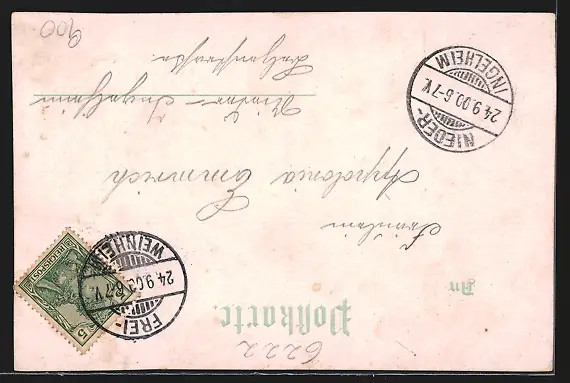 6222
Postkarte.
An
Fräulein
Appolonia Emmerich
Nieder-Ingelheim
REICHSPOST
5
FREI-WEINHEIM
24.9.00.6-7V.
NIEDER-INGELHEIM
24.9.00.6-7V.
900